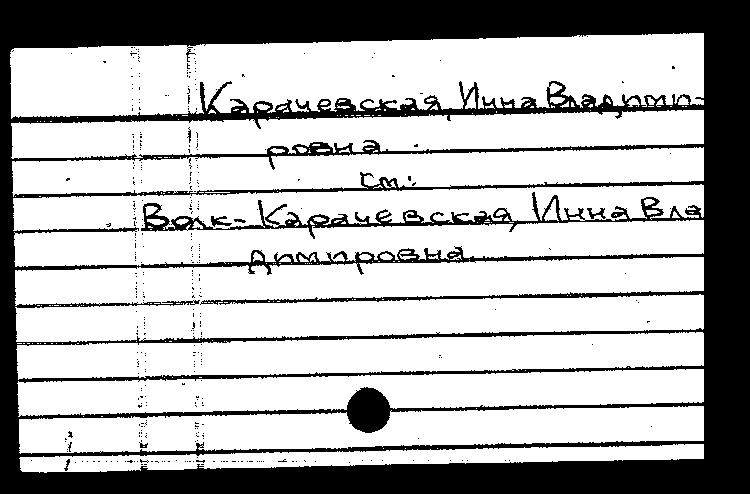 Карачевская, Инна Владими-
ровна.
см:
Волк-Карачевская, Инна Вла
димировна.